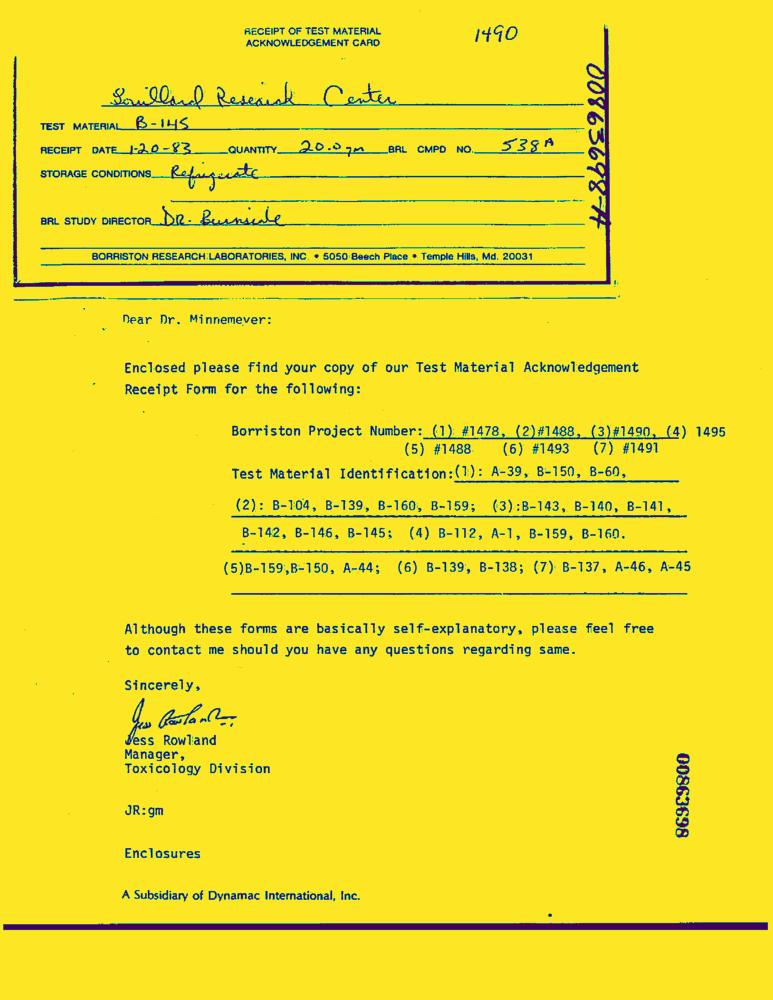 RECEIPT OF TEST MATERIAL
ACKNOWLEDGEMENT CARD
1490
Lorillard Research Center
TEST MATERIAL B-145
RECEIPT DATE 1-20-83 QUANTITY 20.0 gm BRL CMPD NO. 538A
STORAGE CONDITIONS Refrigerate
BRL STUDY DIRECTOR DR. Burnside
BORRISTON RESEARCH LABORATORIES, INC. • 5050 Beech Place • Temple Hills, Md. 20031
00863698-A
Dear Dr. Minnemeyer:
Enclosed please find your copy of our Test Material Acknowledgement
Receipt Form for the following:
Borriston Project Number: (1) #1478, (2)#1488, (3)#1490, (4) 1495
(5) #1488 (6) #1493 (7) #1491
Test Material Identification:(1): A-39, B-150, B-60,
(2): B-104, B-139, B-160, B-159; (3):B-143, B-140, B-141,
B-142, B-146, B-145; (4) B-112, A-1, B-159, B-160.
(5)B-159,B-150, A-44; (6) B-139, B-138; (7) B-137, A-46, A-45
Although these forms are basically self-explanatory, please feel free
to contact me should you have any questions regarding same.
Sincerely,
Jess Rowland
Jess Rowland
Manager,
Toxicology Division
00863698
JR:gm
Enclosures
A Subsidiary of Dynamac International, Inc.